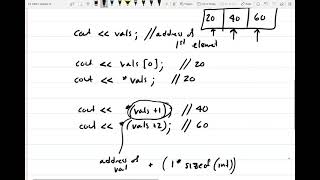 20 40 60
cout << vals; // address of
1st element
cout << vals [0]; // 20
cout << * vals; // 20
cout << *(vals +1); // 40
cout << *(vals +2); // 60
address of
val + (1 * sizeof (int))